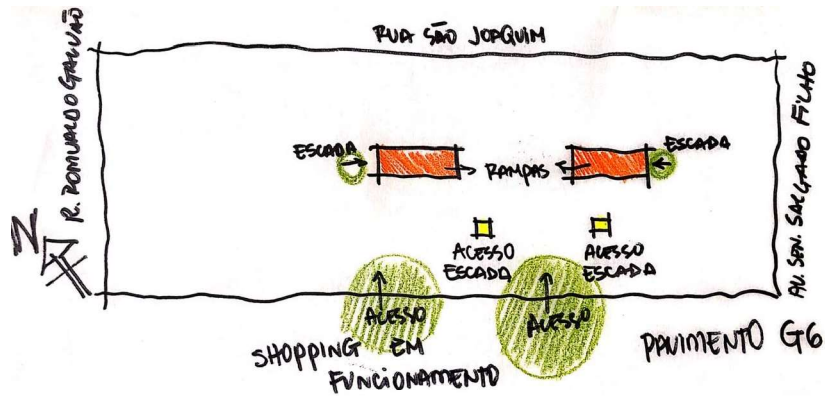 RUA SÃO JOAQUIM
R. ROMUALDO GALVÃO
AV. SEN. SALGADO FILHO
ESCADA
RAMPAS
ESCADA
N
ACESSO
ESCADA
ACESSO
ESCADA
ACESSO
ACESSO
SHOPPING EM
FUNCIONAMENTO
PAVIMENTO G6